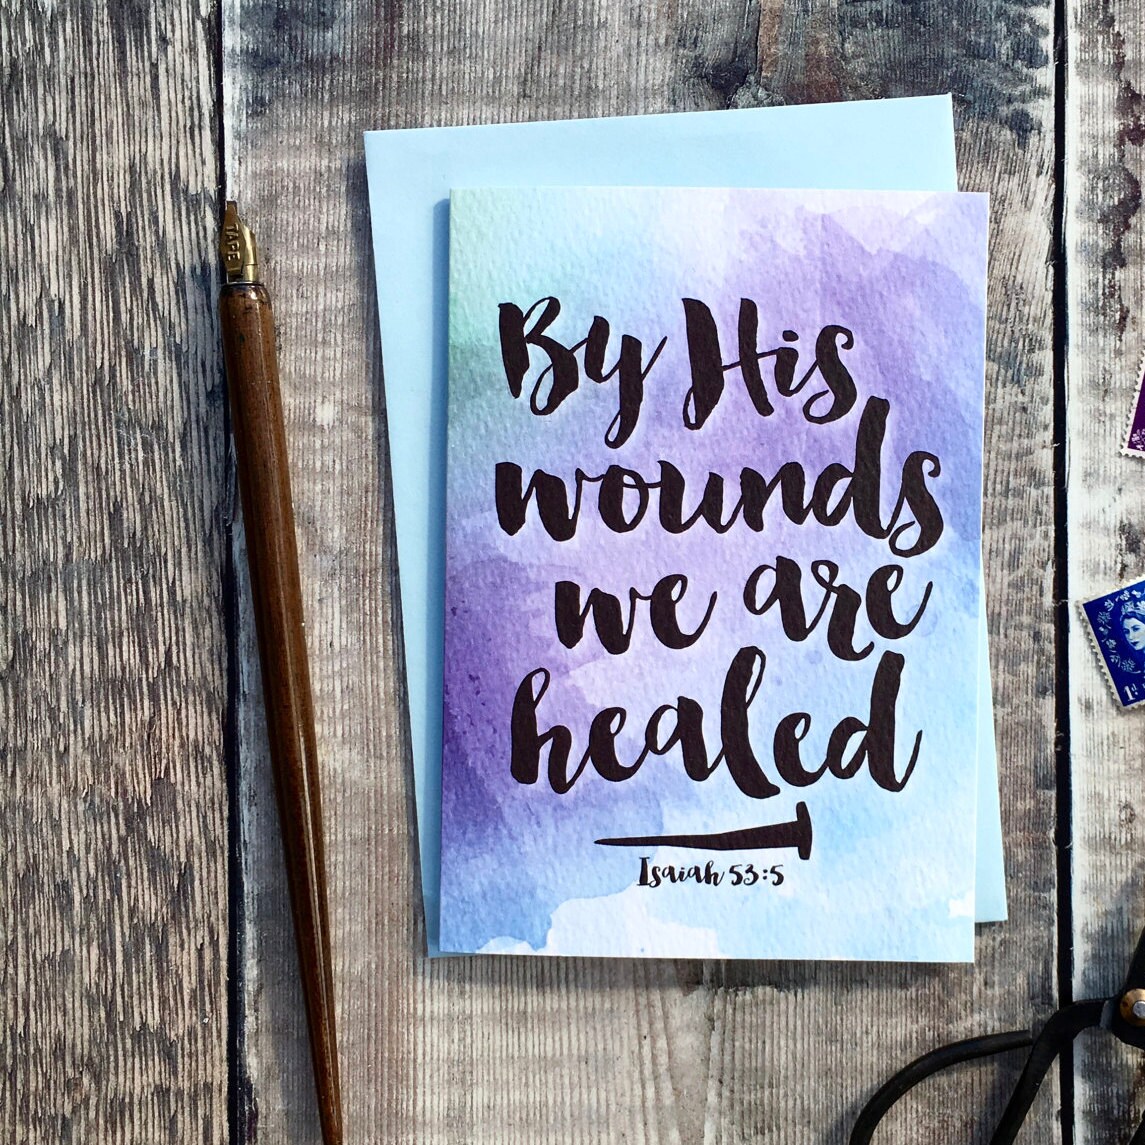 By His
wounds
we are
healed
Isaiah 53:5
TAPE
1d